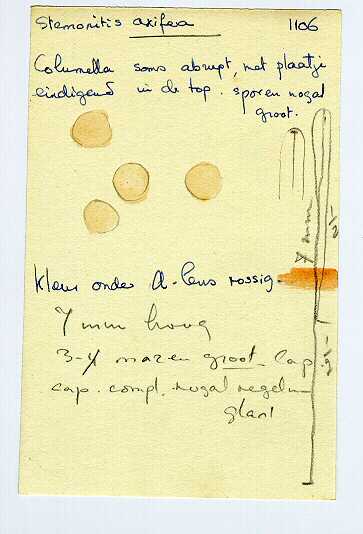 Stemonitis axifera 1106
Columella soms abrupt, met plaatje
eindigend in de top. sporen nogal
groot.
7 mm
1/2
Kleur onder A-lens rossig.
7 mm hoog
3-4 mazen groot. Cap
cap. compl. nogal regelm
glans
1/2